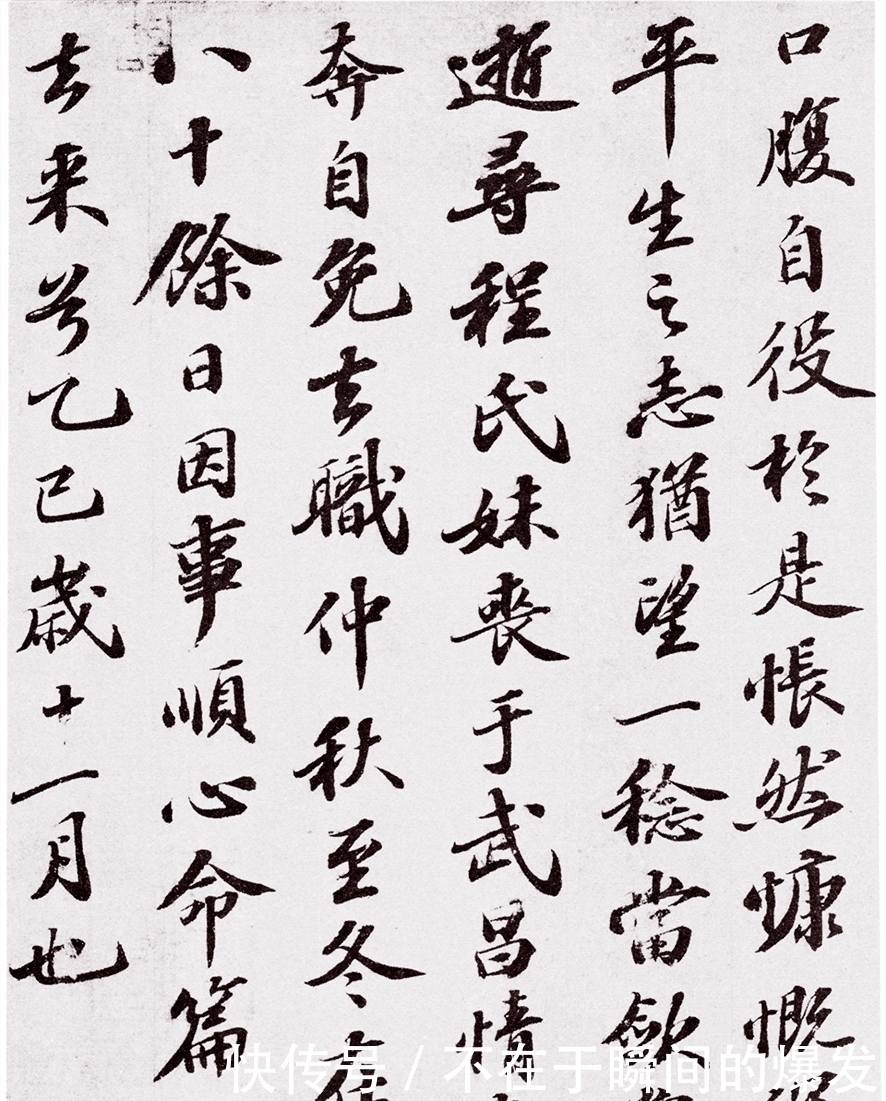 口腹自役於是悵然慷慨
平生之志猶望一稔當歛
逝尋程氏妹喪于武昌情
奔自免去職仲秋至冬在
八十餘日因事順心命篇
去来兮乙巳歲十一月也
快传号 / 不在于瞬间的爆发